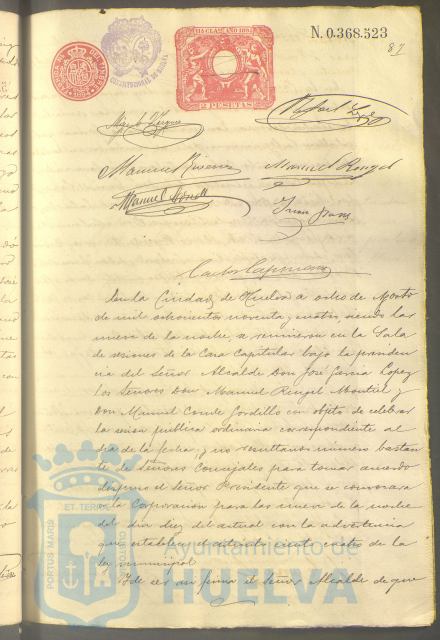 N. 0.368.523
87
11ª CLASE AÑO 1894
2 PESETAS
Rafael López
Manuel Rengel
Juan
Carlos
En la Ciudad de Huelva a ocho de Agosto
de mil ochocientos noventa y cuatro, siendo las
nueve de la noche, se reunieron en la Sala
de sesiones de la Casa Capitular bajo la presiden
cia del Señor Alcalde Don José García López
los Señores Don Manuel Rengel Montiel y
Don Manuel Conde Gordillo con objeto de celebrar
la sesión pública ordinaria correspondiente al
día de la fecha; y no resultando número bastan
te de Señores Concejales para tomar acuerdo
dispuso el Señor Presidente que se convocara
a la Corporación para las nueve de la noche
del día diez del actual con la advertencia
que establece el artículo ciento cuatro de la
ley municipal
Y de ser así firma el Señor Alcalde de que
PORTUS MARIS
ET TERRAE
CUSTODIA
Ayuntamiento de
HUELVA